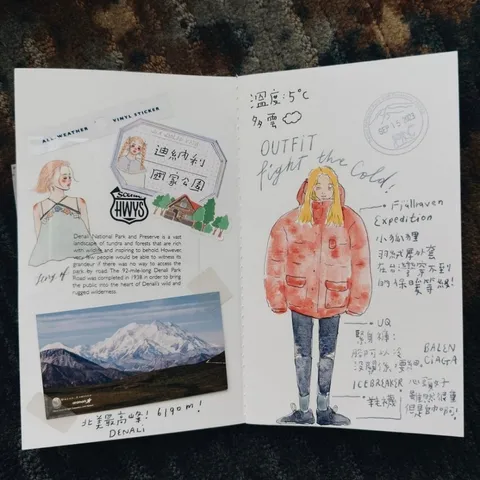 ALL WEATHER
VINYL STICKER
迪納利
國家公園
Scenic
HWYS
Denali National Park and Preserve is a vast
landscape of tundra and forests that are rich
with wildlife and inspiring to behold. However,
very few people would be able to witness its
grandeur if there was no way to access the
park by road. The 92-mile-long Denali Park
Road was completed in 1938 in order to bring
the public into the heart of Denali's wild and
rugged wilderness.
北美最高峰! 6190m!
DENALI
溫度:5°C
多雲
SEP 15
OUTFIT
fight the cold!
Fjallraven
Expedition
小狐狸
羽絨厚外套
在台灣穿不到
的保暖等級!
UQ
緊身褲:
BALEN
CIAGA
ICEBREAKER
鞋襪